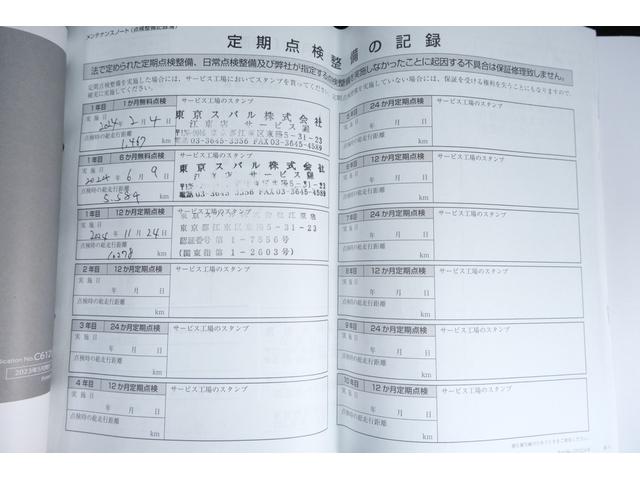 メンテナンスノート(点検整備記録簿)
定期点検整備の記録
法で定められた定期点検整備、日常点検整備及び弊社が指定する点検整備を実施しなかったことに起因する不具合は保証修理致しません。
定期点検整備を実施した場合には、サービス工場においてスタンプを貰ってください。
確実に実施してください。
実施していない場合には、保証を受ける権利を失うことにもなりますので、
1年目 1か月無料点検 サービス工場のスタンプ
実施日
2024年 2月 4日
点検時の総走行距離
1,467 km
東京スバル株式会社
江東店 サービス課
東京都江東区東砂5-31-23
電03-3645-3356 FAX03-3645-4589
1年目 6か月無料点検 サービス工場のスタンプ
実施日
2024年 6月 9日
点検時の総走行距離
5,584 km
東京スバル株式会社
サービス課
5-31-23
電03-3645-3356 FAX03-3645-4589
1年目 12か月定期点検 サービス工場のスタンプ
実施日
2024年 11月 24日
点検時の総走行距離
10278 km
東京スバル株式会社江東店
東京都江東区東砂5-31-23
認証番号第1-7556号
(関東指第1-2603号)
2年目 12か月定期点検 サービス工場のスタンプ
実施日
年 月 日
点検時の総走行距離
km
3年目 24か月定期点検 サービス工場のスタンプ
実施日
年 月 日
点検時の総走行距離
km
4年目 12か月定期点検 サービス工場のスタンプ
実施日
年 月 日
点検時の総走行距離
km
5年目 24か月定期点検 サービス工場のスタンプ
実施日
年 月 日
点検時の総走行距離
km
6年目 12か月定期点検 サービス工場のスタンプ
実施日
年 月 日
点検時の総走行距離
km
7年目 24か月定期点検 サービス工場のスタンプ
実施日
年 月 日
点検時の総走行距離
km
8年目 12か月定期点検 サービス工場のスタンプ
実施日
年 月 日
点検時の総走行距離
km
9年目 24か月定期点検 サービス工場のスタンプ
実施日
年 月 日
点検時の総走行距離
km
10年目 12か月定期点検 サービス工場のスタンプ
実施日
年 月 日
点検時の総走行距離
km
ication No.C612